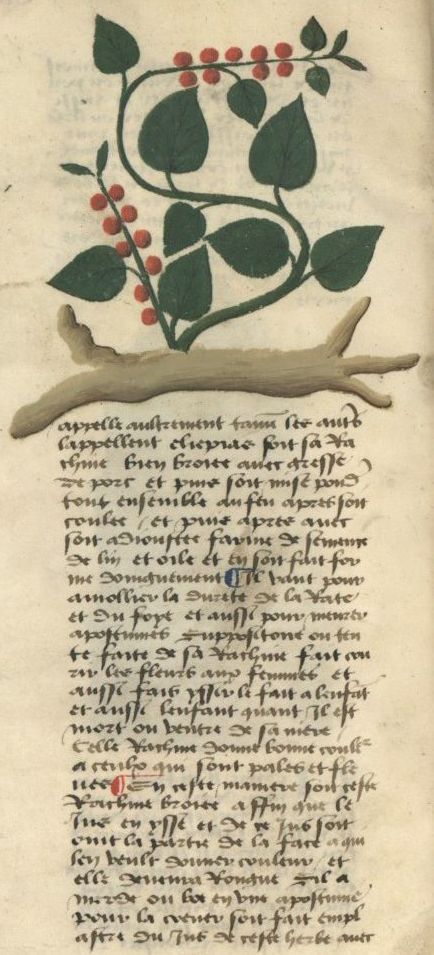 appelle aultrement tann les autres
lappellent eliepias soit sa Ra
chine bien broiee avec gresse
de porc et puis soit mise
tout ensemble au feu apres soit
coulee et puis apres avec
soit adioustee farine de semence
de lin et oile et en soit fait for
me doinguement Il vault pour
amollier la durete de la Rate
et du foye et aussi pour meurer
apostumes Suppositoire ou ten
te faite de sa Rachine fait cou
rir les fleurs aux femmes et
aussi fait yssir le fait a lenfant
et aussi lenfant quant Il est
mort ou ventre de sa mere
Celle Rachine donne bonne couler
a ceulx qui sont pales et fle
En ceste maniere soit ceste
Rachine broiee affin que le
Jus en ysse et de ce Jus soit
oint la partie de la face a qui
len veult donner couleur et
elle devenra Rouge Sil a
morde ou boe en une apostume
pour la crever soit fait empl
astre du Jus de ceste herbe avec